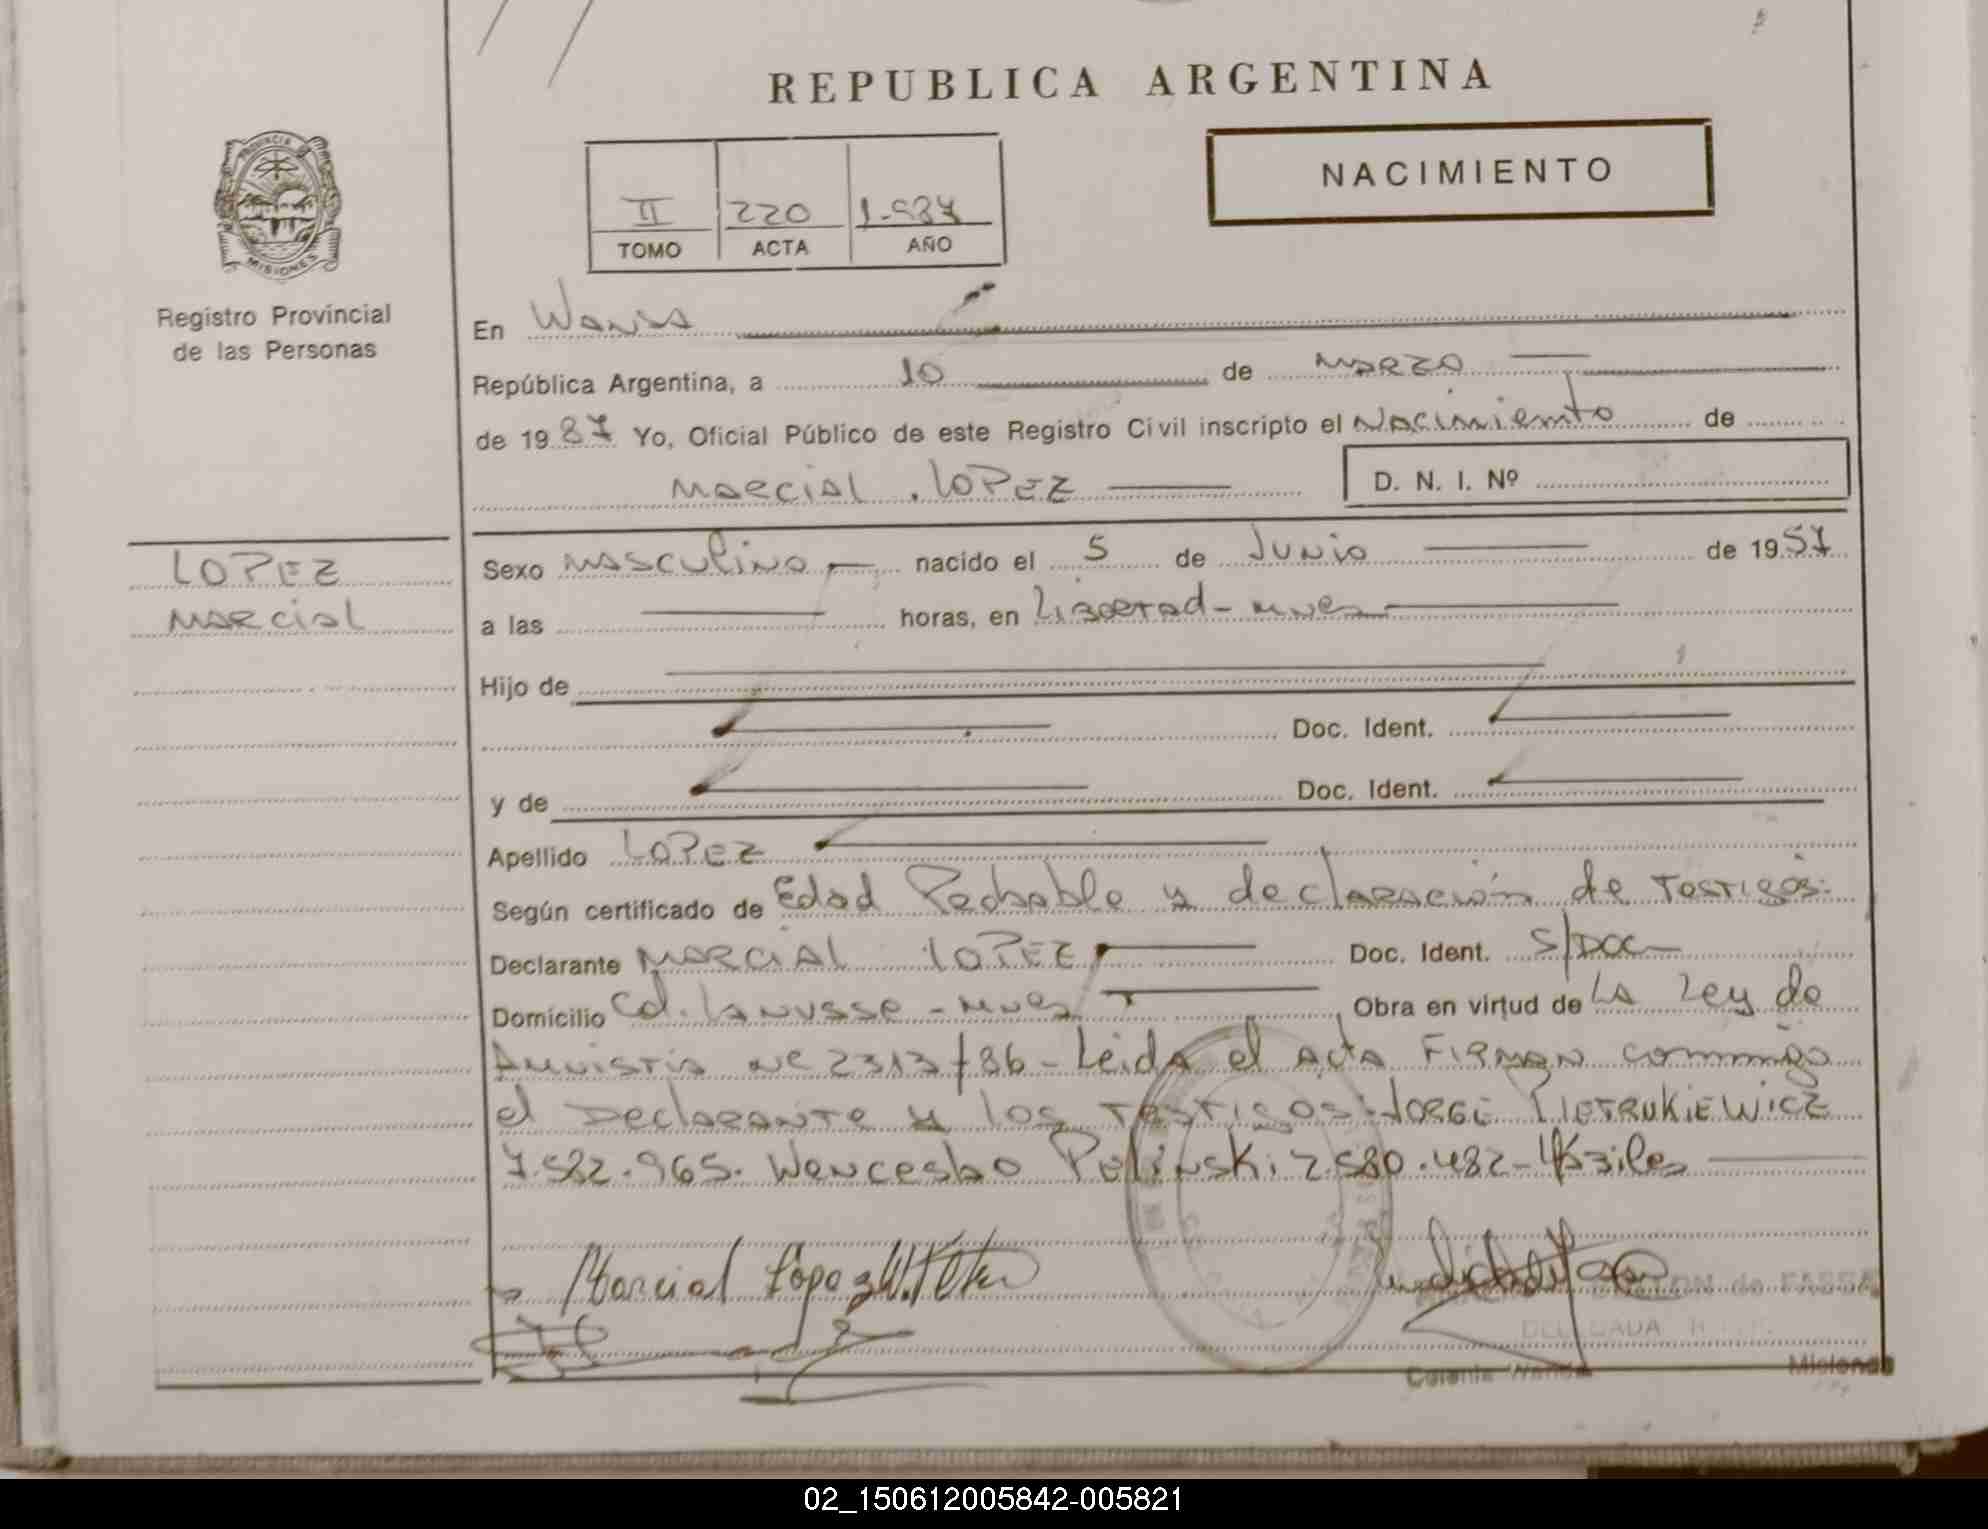 REPUBLICA ARGENTINA
NACIMIENTO
II 220 1.987
TOMO ACTA AÑO
PROVINCIA DE
MISIONES
Registro Provincial
de las Personas
En Wanda
República Argentina, a 10 de MARZO
de 1987 Yo, Oficial Público de este Registro Civil inscripto el Nacimiento de
MARCIAL . LOPEZ
D. N. I. Nº
LOPEZ
MARCIAL
Sexo MASCULINO nacido el 5 de JUNIO de 1957
a las horas, en Libertad - Mnes
Hijo de
Doc. Ident.
y de Doc. Ident.
Apellido LOPEZ
Según certificado de Edad Probable y declaración de Testigos.
Declarante MARCIAL LOPEZ Doc. Ident. S/DOC
Domicilio Cd. Lanusse - Mnes Obra en virtud de LA Ley de
Amnistia Nº 2313/86 - Leida el Acta FIRMAN conmigo
el Declarante y los Testigos: JORGE PIETRUKIEWICZ
7.582.965. Wenceslao Polinski 2.580.482-
Marcial Lopez
de FASSA
DELEGADA
Colonia Wanda Misiones
02_150612005842-005821